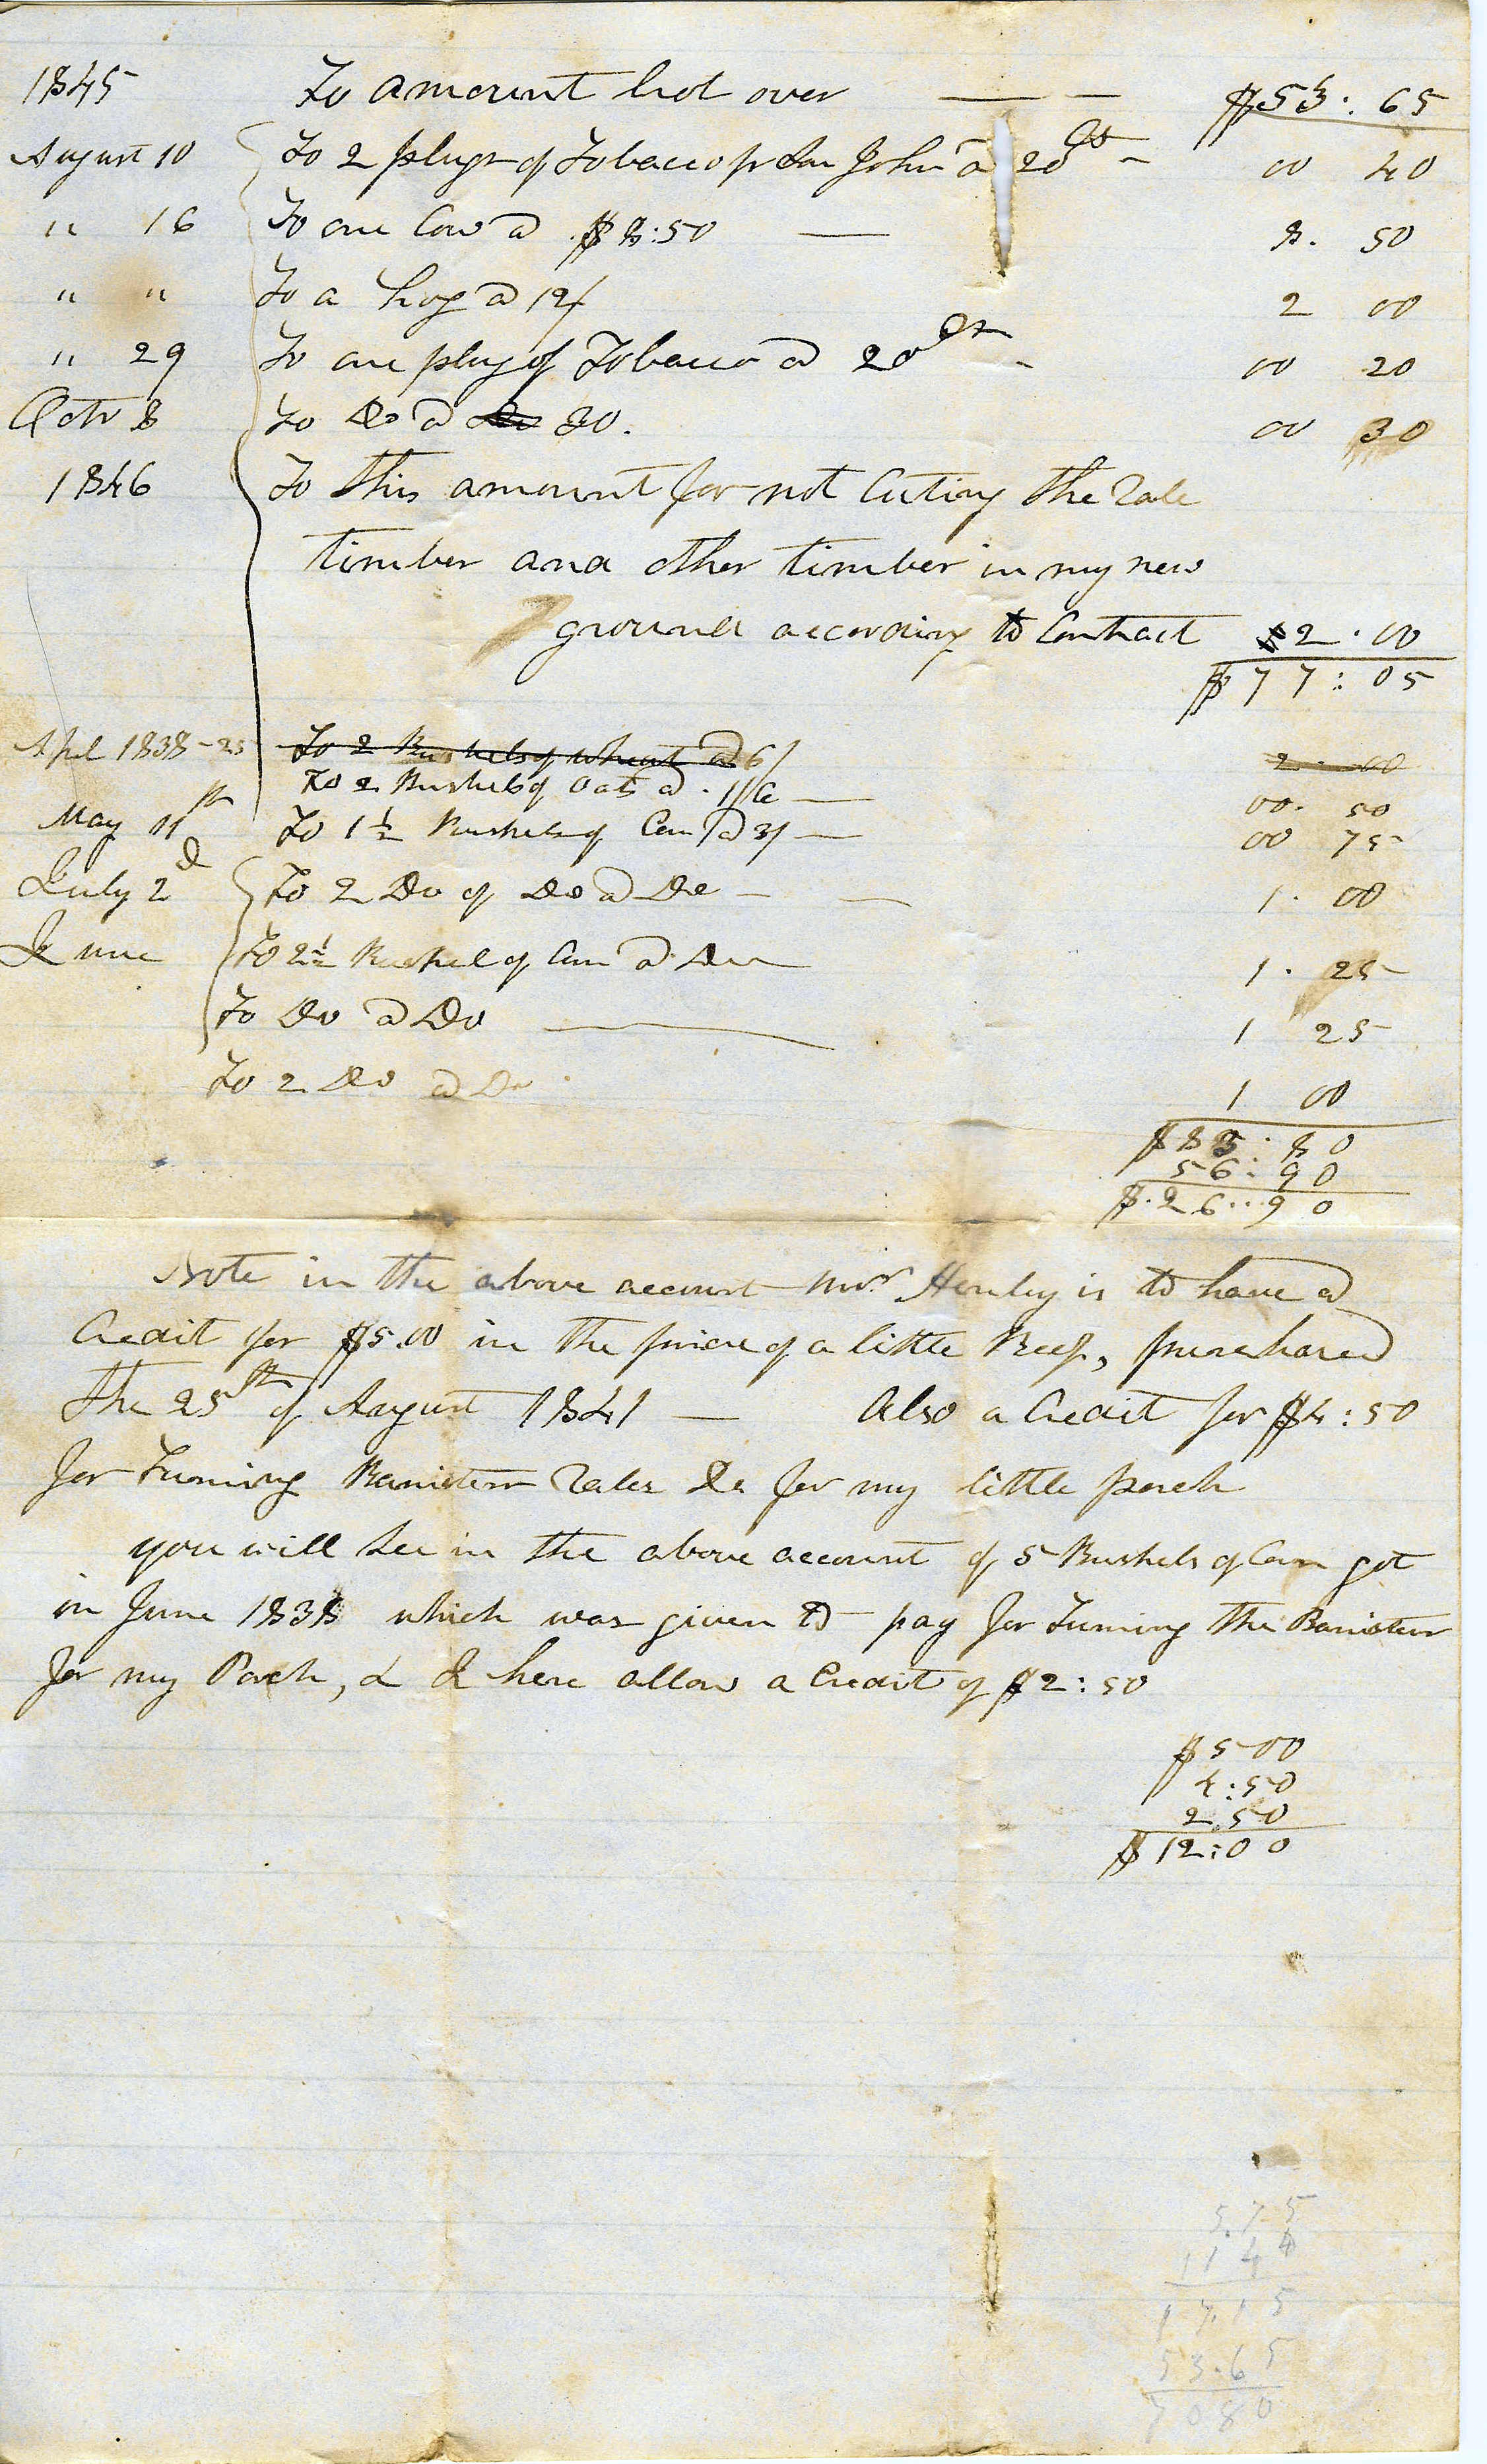 1845 To amount brot over — — $53:65
August 10 To 2 plugs of Tobacco pr Son John a 20 cts — 00 40
" 16 To one Cow a $8:50 — 8. 50
" " To a hog a 12/ 2 00
" 29 To one plug of Tobacco a 20 cts - 00 20
Octr 8 To Do a Do 30. 00 30
1846 To this amount for not Cuting the Rale
timber and other timber in my new
ground according to Contract 12.00
$77:05
Apl 1838-25 To 2 Bushels of Wheat a 6/ 2 00
To 2 Bushels of Oats a 1/6 — 00. 50
May 11th To 1½ Bushels of Corn a 3/ — 00 75
July 2d To 2 Do of Do a Do — — 1. 00
June To 2½ Bushel of Corn a Do 1. 25
To Do a Do — 1 25
To 2 Do a Do 1 00
$83:80
56:90
$.26..90
Note in the above account Mr. Henley is to have a
Credit for $5.00 in the price of a little Beef, purchased
the 25th of August 1841 — Also a Credit for $4:50
for Turning Banisters Rales &c for my little porch
you will see in the above account of 5 Bushels of Corn got
in June 1838 which was given to pay for Turning the Banisters
for my Porch, & I here allow a Credit of $2:50
$5-00
4:50
2.50
$12:00
5.75
11 44
17.15
53.65
7080